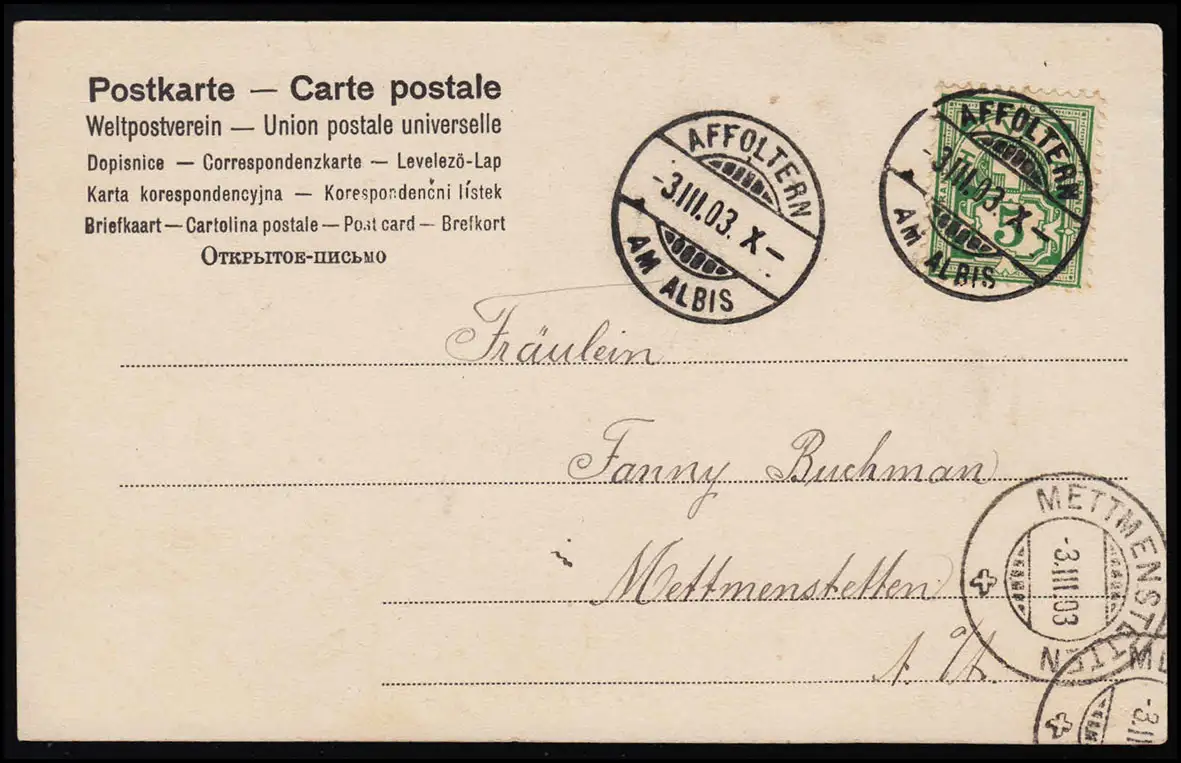 Postkarte — Carte postale
Weltpostverein — Union postale universelle
Dopisnice — Correspondenzkarte — Levelezö-Lap
Karta korespondencyjna — Korespondenčni lístek
Briefkaart — Cartolina postale — Post card — Brefkort
Открытое-письмо
AFFOLTERN
-3.III.03. X-
AM ALBIS
AFFOLTERN
-3.III.03. X-
AM ALBIS
5
Fräulein
Fanny Buchman
i
Mettmenstetten
METTMENSTETTEN
-3.III.03
ME
-3.II